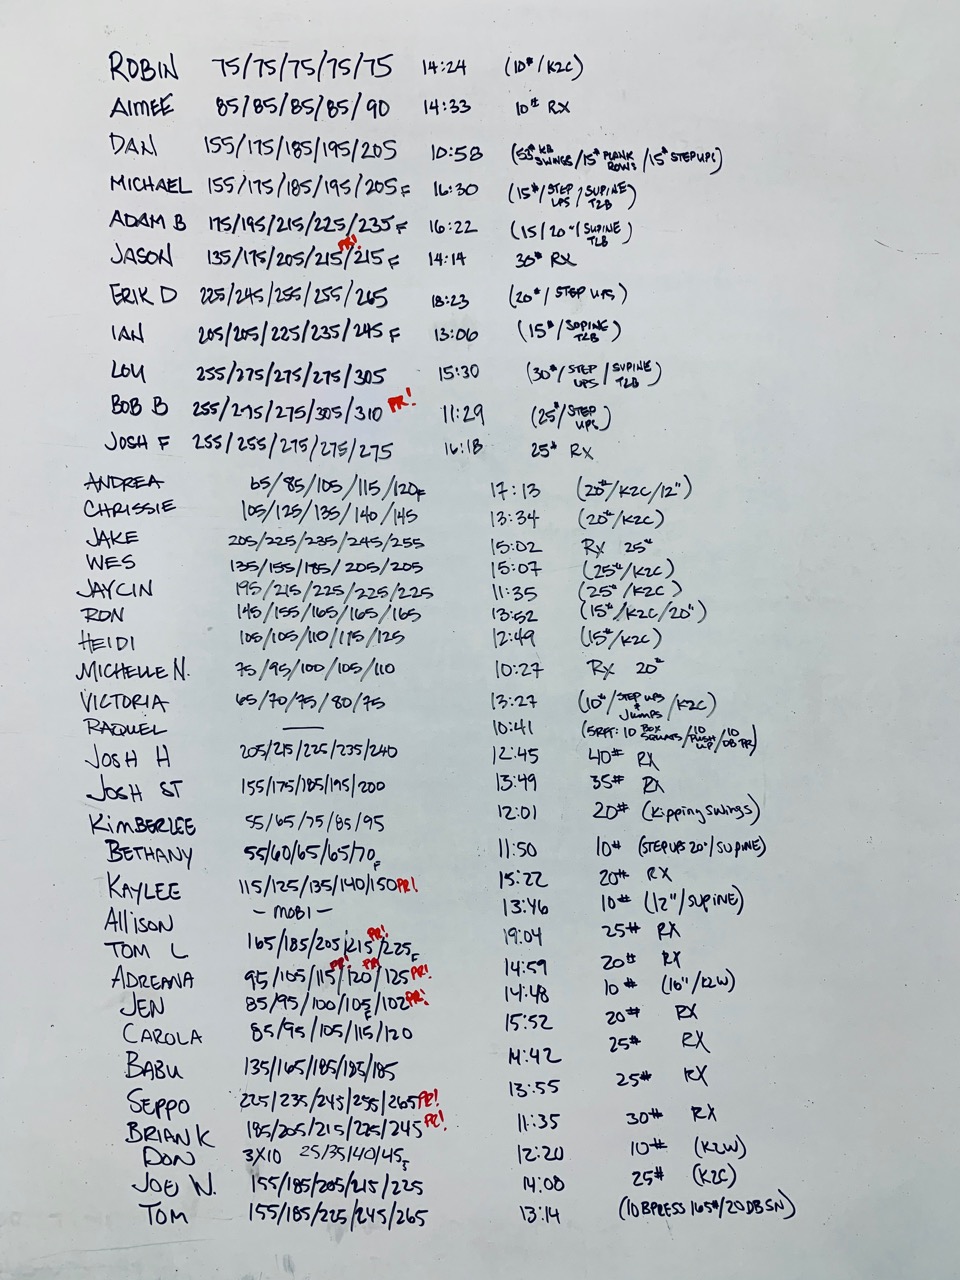 ROBIN 75/75/75/75/75 14:24 (10#/K2C)
AIMEE 85/85/85/85/90 14:33 10# RX
DAN 155/175/185/195/205 10:58 (53# KB SWINGS/15# PLANK ROWS/15# STEP UPS)
MICHAEL 155/175/185/195/205F 16:30 (15#/STEP UPS/SUPINE T2B)
ADAM B 175/195/215/225/235F 16:22 (15/20"/SUPINE T2B)
JASON 135/175/205/215 PR!/215F 14:14 30# RX
ERIK D 225/245/255/255/265 18:23 (20#/STEP UPS)
IAN 205/205/225/235/245F 13:06 (15#/SUPINE T2B)
LOU 255/275/275/275/305 15:30 (30#/STEP UPS/SUPINE T2B)
BOB B 255/275/275/305/310 PR! 11:29 (25#/STEP UPS)
JOSH F 255/255/275/275/275 16:18 25# RX
ANDREA 65/85/105/115/120F 17:13 (20#/K2C/12")
CHRISSIE 105/125/135/140/145 13:34 (20#/K2C)
JAKE 205/225/235/245/255 15:02 RX 25#
WES 135/155/185/205/205 15:07 (25#/K2C)
JAYCIN 195/215/225/225/225 11:35 (25#/K2C)
RON 145/155/165/165/165 13:52 (15#/K2C/20")
HEIDI 105/105/110/115/125 12:49 (15#/K2C)
MICHELLE N. 75/95/100/105/110 10:27 RX 20#
VICTORIA 65/70/75/80/75 13:27 (10#/STEP UPS + JUMPS/K2C)
RAQUEL — 10:41 (5RFT: 10 BOX SQUATS/10 PUSH UP/10 DB PR)
JOSH H 205/215/225/235/240 12:45 40# RX
JOSH ST 155/175/185/195/200 13:49 35# RX
KIMBERLEE 55/65/75/85/95 12:01 20# (Kipping SWINGS)
BETHANY 55/60/65/65/70F 11:50 10# (STEP UPS 20"/SUPINE)
KAYLEE 115/125/135/140/150 PR! 15:22 20# RX
Allison - MOBI - 13:46 10# (12"/SUPINE)
TOM L 165/185/205/215 PR!/225F 19:04 25# RX
ADREANA 95/105/115 PR!/120 PR/125 PR! 14:59 20# RX
JEN 85/95/100/105F/102 PR! 14:48 10# (16"/K2W)
CAROLA 85/95/105/115/120 15:52 20# RX
BABU 135/165/185/185/185 14:42 25# RX
SEPPO 225/235/245/255/265 PR! 13:55 25# RX
BRIAN K 185/205/215/225/245 PR! 11:35 30# RX
DON 3X10 25/35/40/45 12:20 10# (K2W)
JOE W. 155/185/205/215/225 14:08 25# (K2C)
TOM 155/185/225/245/265 13:14 (10 BPRESS 165#/20 DB SN)